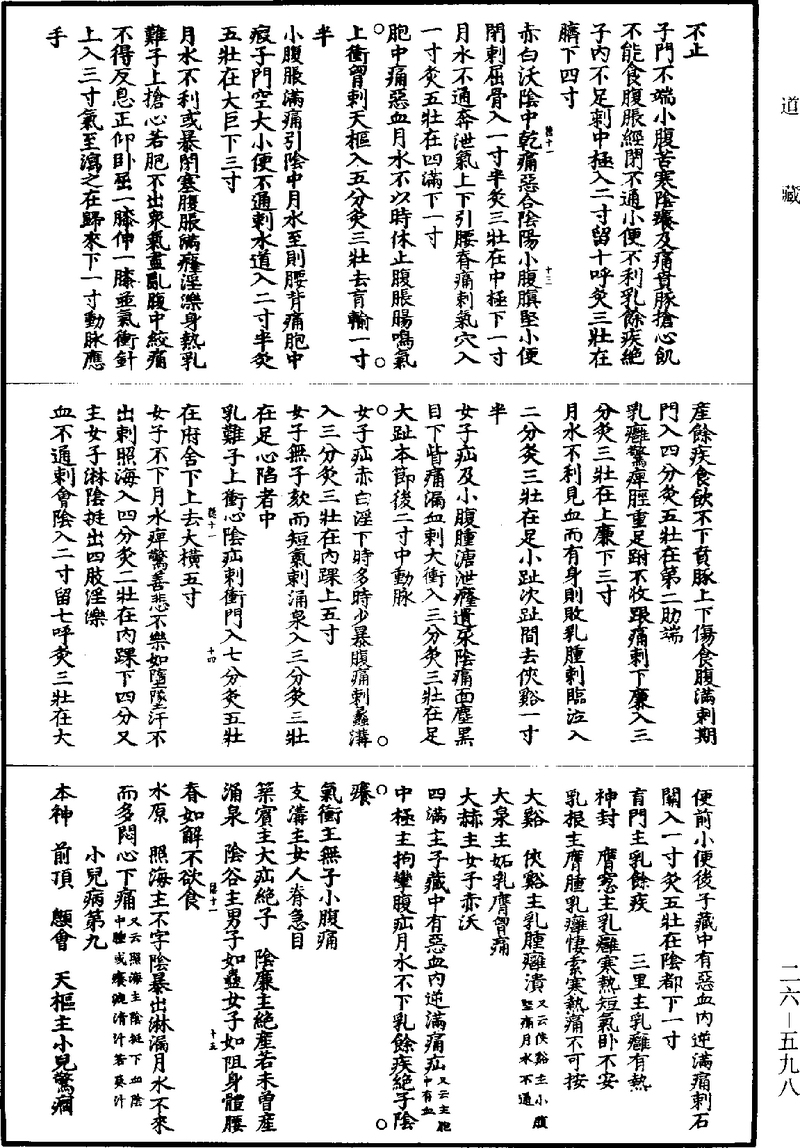 道藏
不止
子門不端小腹苦寒陰癢及痛賁豚搶心飢
不能食腹脹經閉不通小便不利乳餘疾絕
子內不足刺中極入二寸留十呼灸三壯在
臍下四寸
赤白沃陰中乾痛惡合陰陽小腹䐜堅小便
閉刺屈骨入一寸半灸三壯在中極下一寸
月水不通奔泄氣上下引腰脊痛刺氣穴入
一寸灸五壯在四滿下一寸
胞中痛惡血月水不以時休止腹脹腸鳴氣
上衝胷刺天樞入五分灸三壯去肓輸一寸
半
小腹脹滿痛引陰中月水至則腰背痛胞中
瘕子門空大小便不通刺水道入二寸半灸
五壯在大巨下三寸
月水不利或暴閉塞腹脹滿癃淫濼身熱乳
難子上搶心若胞不出衆氣盡亂腹中絞痛
不得反息正仰臥屈一膝伸一膝並氣衝針
上入三寸氣至瀉之在歸來下一寸動脉應
手
產餘疾食飲不下賁豚上下傷食腹滿刺期
門入四分灸五壯在第二肋端
乳癰驚痺脛重足跗不收跟痛刺下廉入三
分灸三壯在上廉下三寸
月水不利見血而有身則敗乳腫刺臨泣入
二分灸三壯在足小趾次趾間去俠谿一寸
半
女子疝及小腹腫溏泄癃遺尿陰痛面塵黑
目下眥痛漏血刺大衝入三分灸三壯在足
大趾本節後二寸中動脉
女子疝赤白淫下時多時少暴腹痛刺蠡溝
入三分灸三壯在內踝上五寸
女子無子欬而短氣刺涌泉入三分灸三壯
在足心陷者中
乳難子上衝心陰疝刺衝門入七分灸五壯
在府舍下上去大橫五寸
女子不下月水痺驚善悲不樂如墮墜汗不
出刺照海入四分灸二壯在內踝下四分又
主女子淋陰挺出四肢淫濼
血不通刺會陰入二寸留七呼灸三壯在大
便前小便後子藏中有惡血內逆滿痛刺石
關入一寸灸五壯在陰都下一寸
肓門主乳餘疾　三里主乳癰有熱
神封　膺窻主乳癰寒熱短氣臥不安
乳根主膺腫乳癰悽索寒熱痛不可按
大谿　俠谿主乳腫癰潰又云俠谿主小腹堅痛月水不通
大泉主妬乳膺胷痛
大赫主女子赤沃
四滿主子藏中有惡血內逆滿痛疝又云主胞中有血
中極主拘攣腹疝月水不下乳餘疾絕子陰
癢
氣衝主無子小腹痛
支溝主女人脊急目
築賓主大疝絕子　陰廉主絕產若未曾產
涌泉　陰谷主男子如蠱女子如阻身體腰
脊如解不欲食
水原　照海主不字陰暴出淋漏月水不來
而多悶心下痛又云照海主陰挺下血陰中腫或癢漉清汁若葵汁
小兒病第九
本神　前頂　顖會　天樞主小兒驚癇
二六—五九八